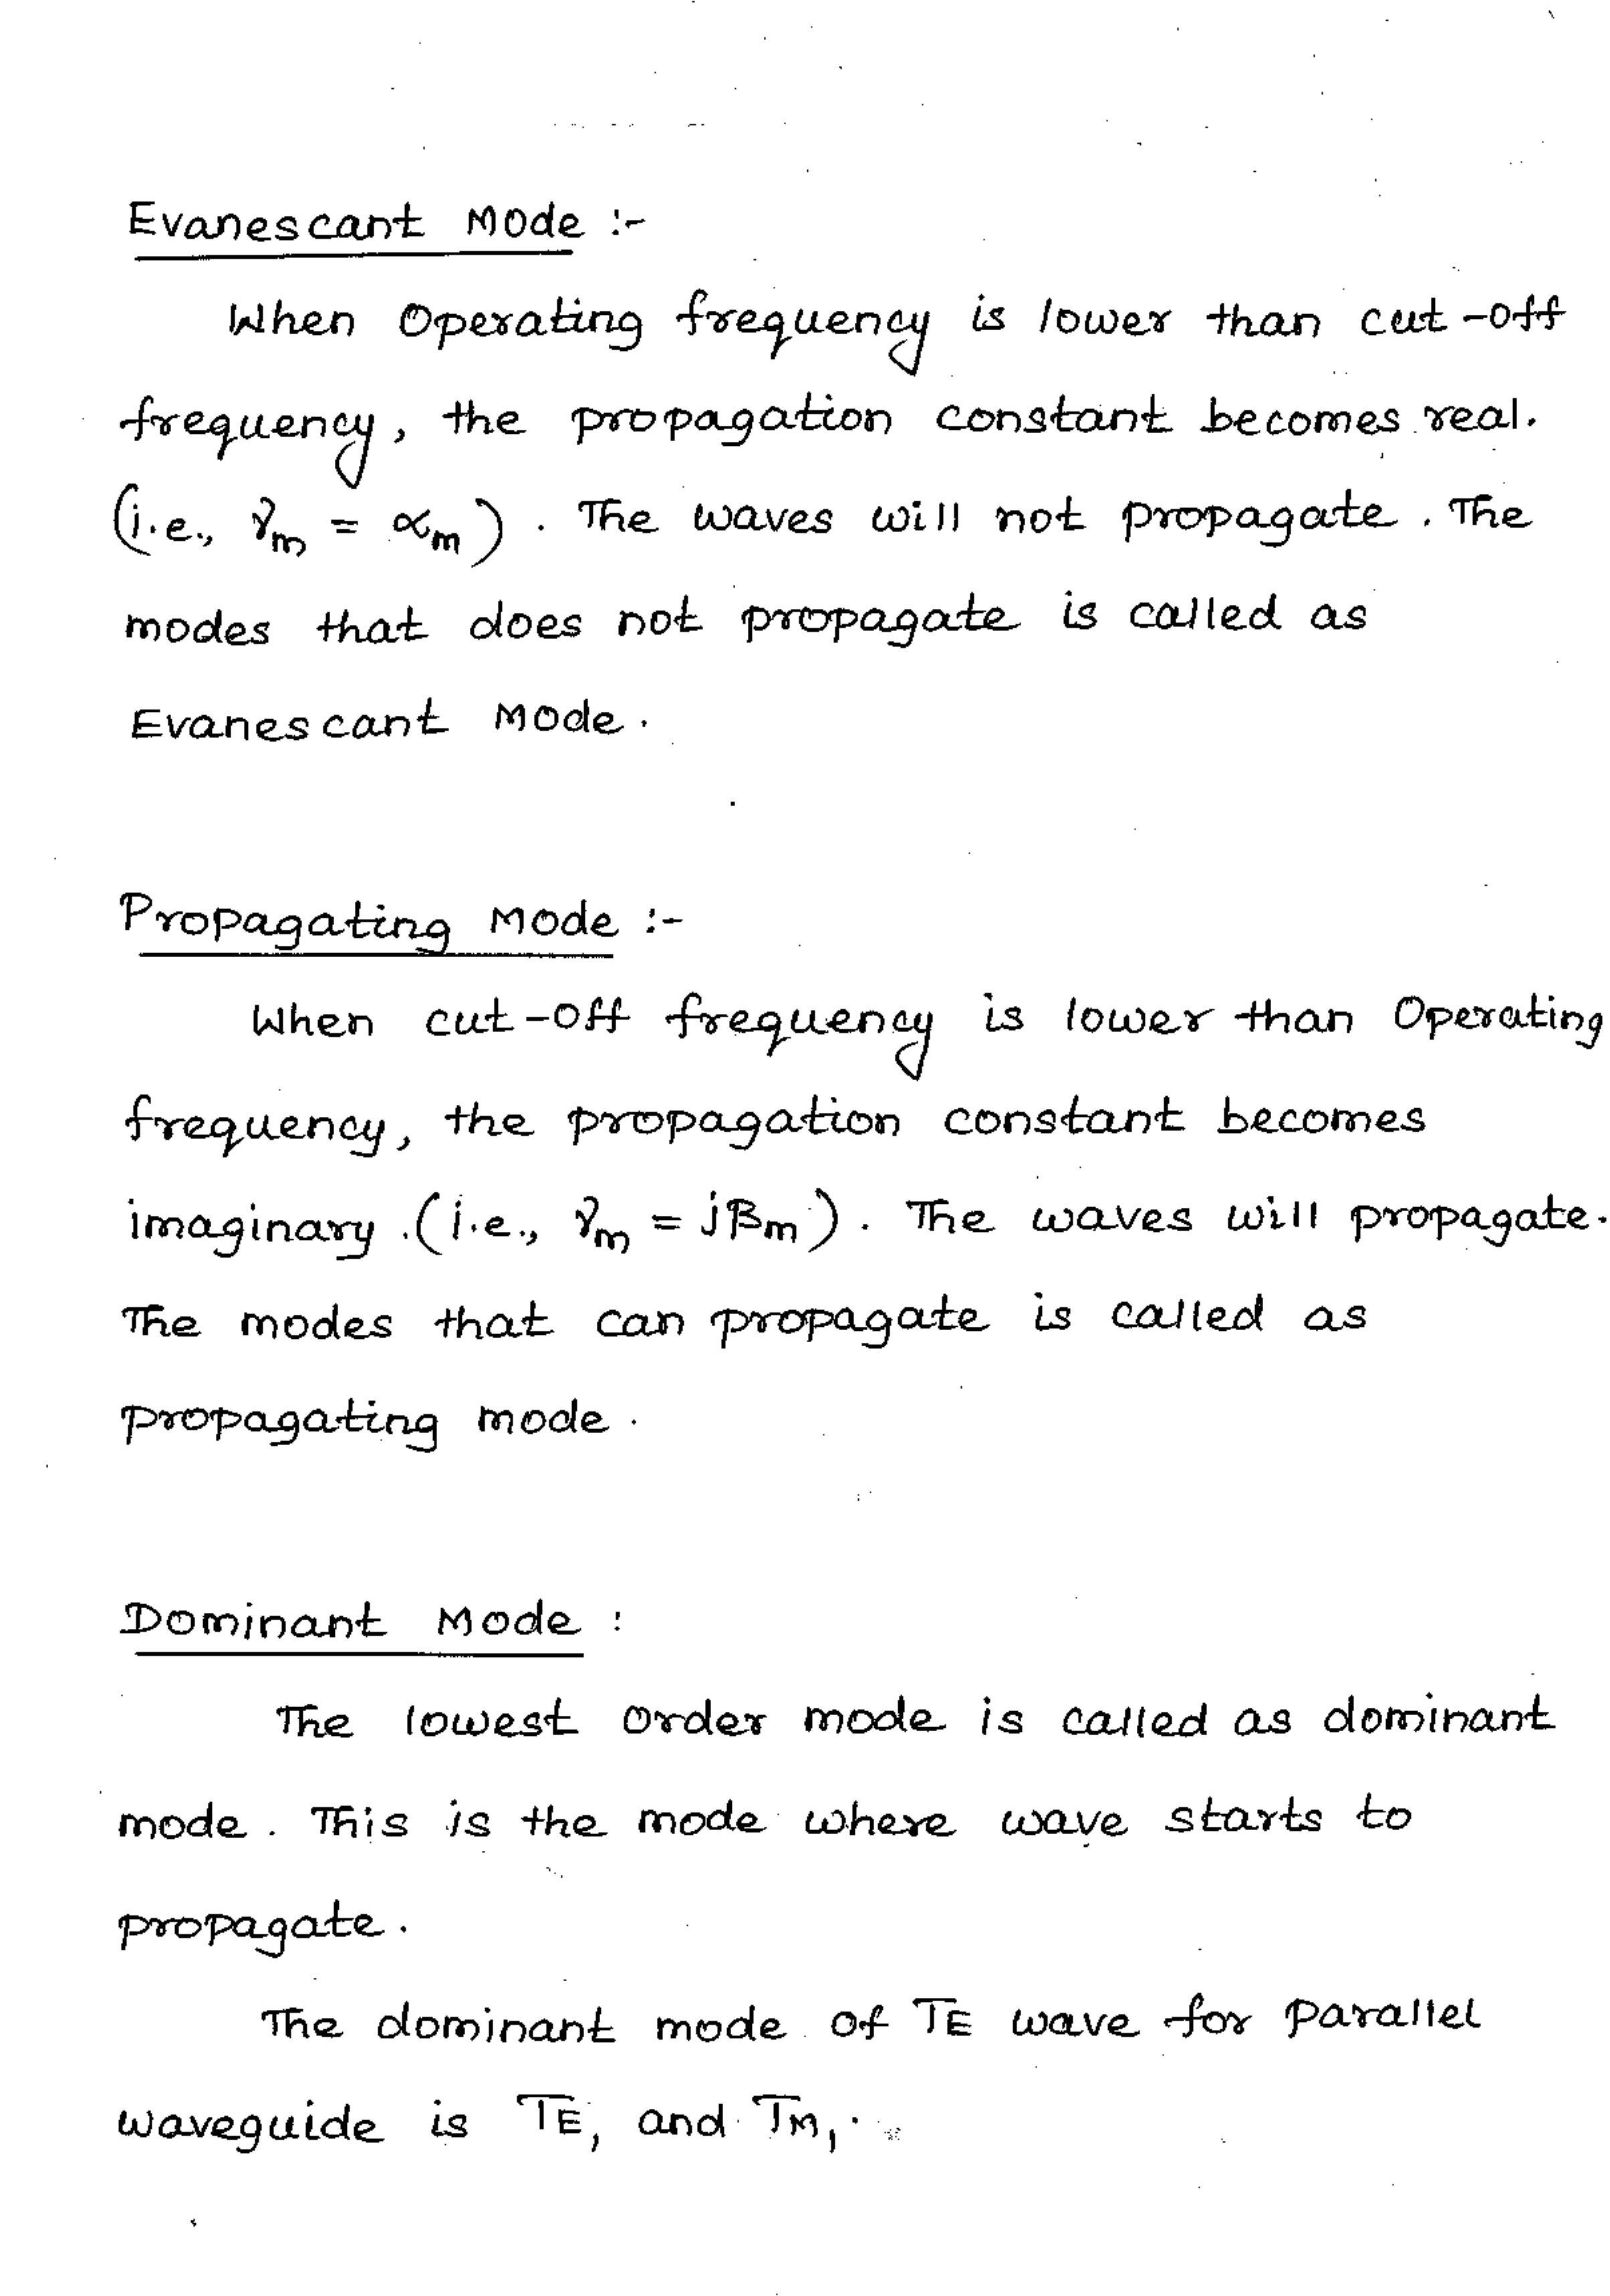 Evanescant Mode :-
When Operating frequency is lower than cut-off
frequency, the propagation constant becomes real.
(i.e., γₘ = αₘ). The waves will not propagate. The
modes that does not propagate is called as
Evanescant Mode.
Propagating Mode :-
When cut-off frequency is lower than Operating
frequency, the propagation constant becomes
imaginary. (i.e., γₘ = jβₘ). The waves will propagate.
The modes that can propagate is called as
propagating mode.
Dominant Mode :
The lowest order mode is called as dominant
mode. This is the mode where wave starts to
propagate.
The dominant mode of TE wave for parallel
waveguide is TE₁ and TM₁.